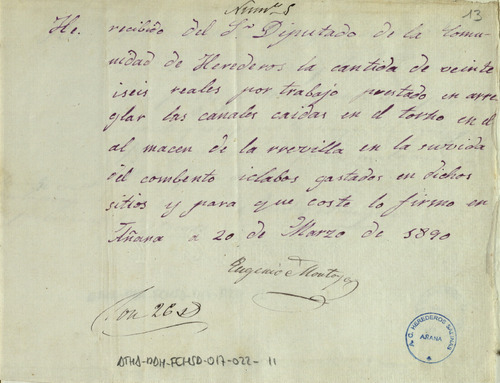 Núm. 5
13
He. recibido del Sr. Diputado de la Comu
nidad de Herederos la cantida de veinte
iseis reales por trabajo prestado en arre
glar las canales caidas en el torno en el
al macen de la rrevilla en la suvida
del combento iclabos gastados en dichos
sitios y para que coste lo firmo en
Añana a 20 de Marzo de 1890
Eugenio Montoya
Son 26 rs
A.C. HEREDEROS SALINAS
AÑANA
ATHA-DDH-FCHSD-017-022-11